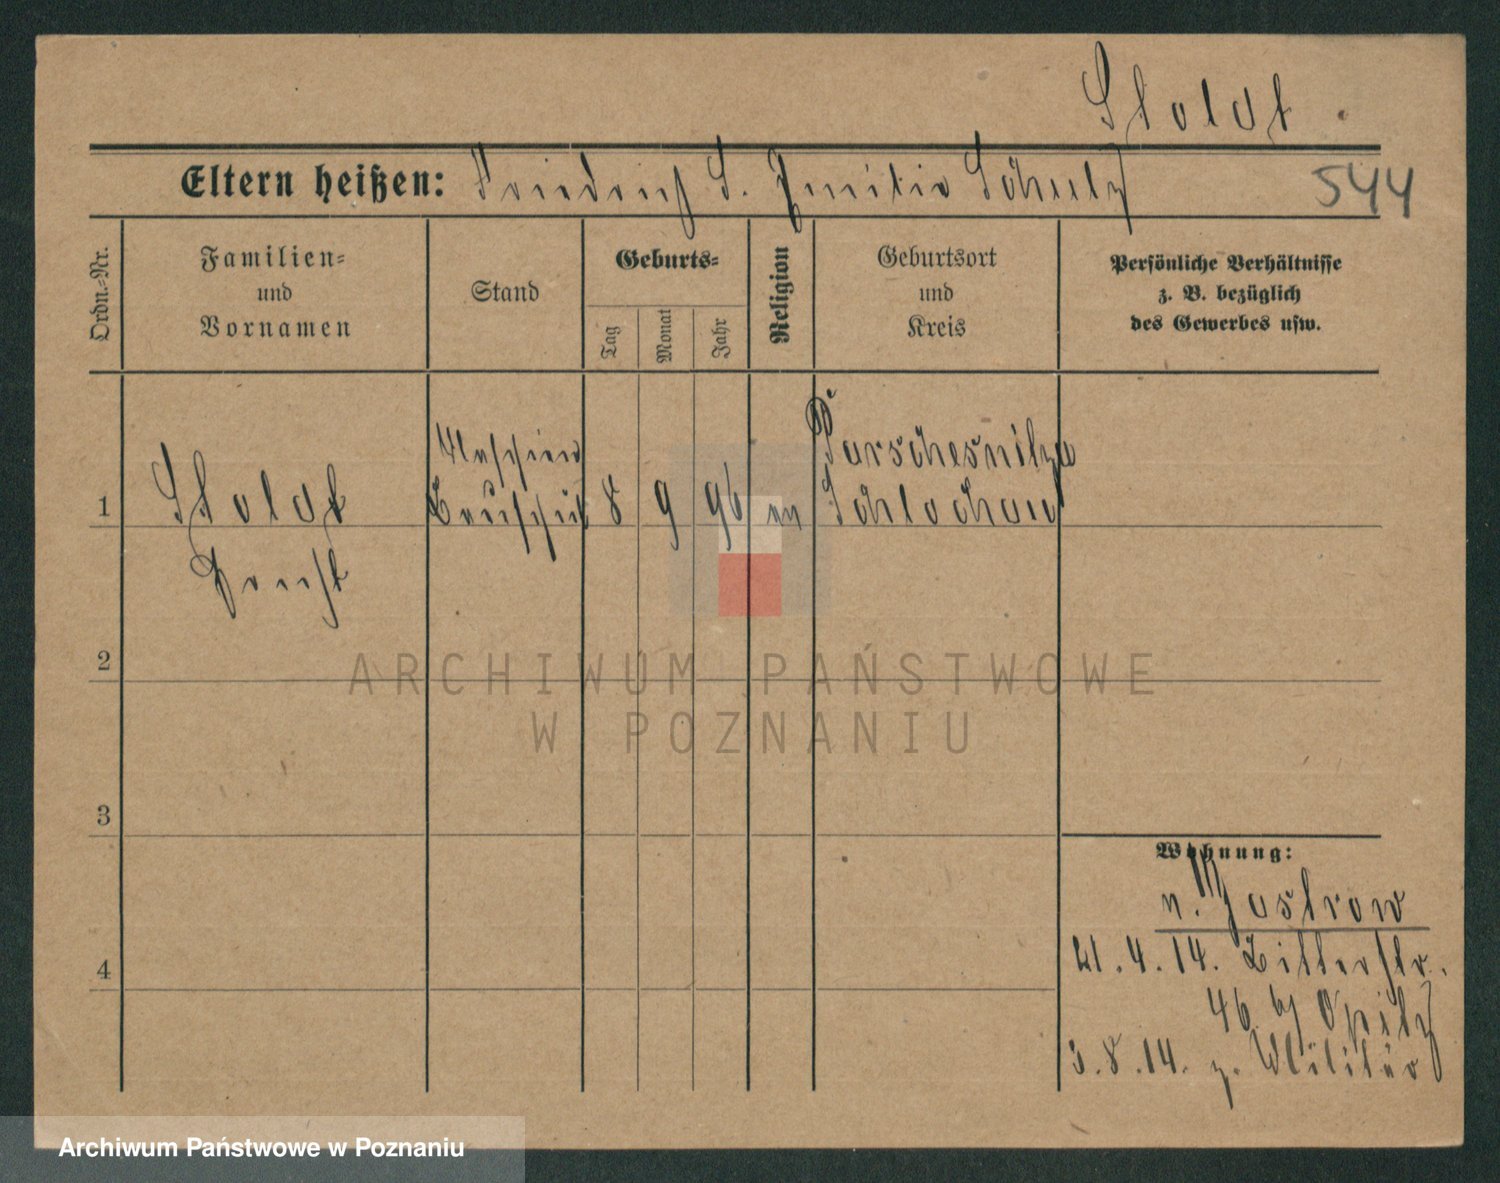 Stoldt.
Eltern heißen: Friedrich S. Emilie Schulz 544
Ordn.-Nr.
Familien-
und
Vornamen
Stand
Geburts-
Tag
Monat
Jahr
Religion
Geburtsort
und
Kreis
Persönliche Verhältnisse
z. B. bezüglich
des Gewerbes usw.
1
Stoldt
Ernst
Maschinen
8
9
96
Schlochau
2
3
4
Wohnung:
n. Jastrow
21.4.14. Ritterstr.
46 bj Opitz
3.8.14. z. Militär
ARCHIWUM PAŃSTWOWE
W POZNANIU
Archiwum Państwowe w Poznaniu